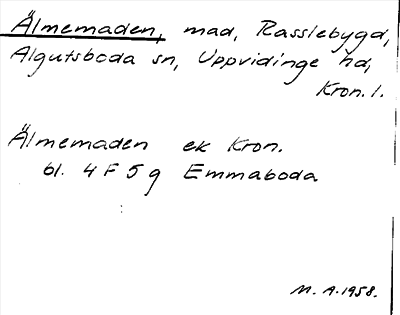 Älmemaden, mad, Rasslebygd,
Algutsboda sn, Uppvidinge hd,
Kron. l.
Älmemaden ek Kron.
bl. 4 F 5 g Emmaboda
M. A. 1958.